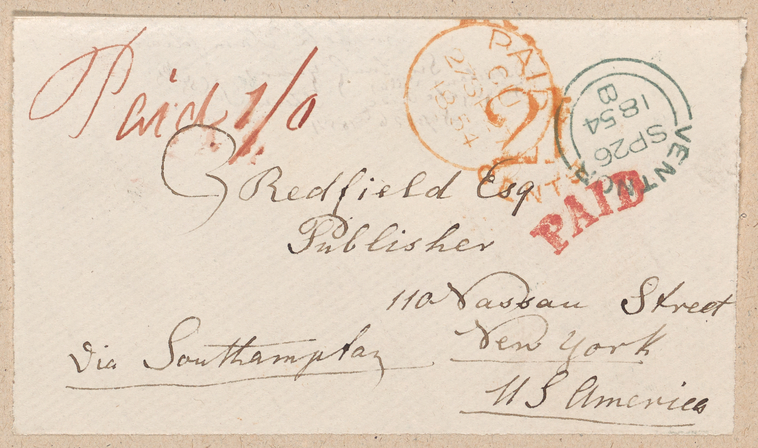 Paid 1/0
PAID
27 SP 27
1854
2
VENTNOR
SP 26
1854
B
PAID
J Redfield Esq
Publisher
110 Nassau Street
New York
U S America
via Southampton